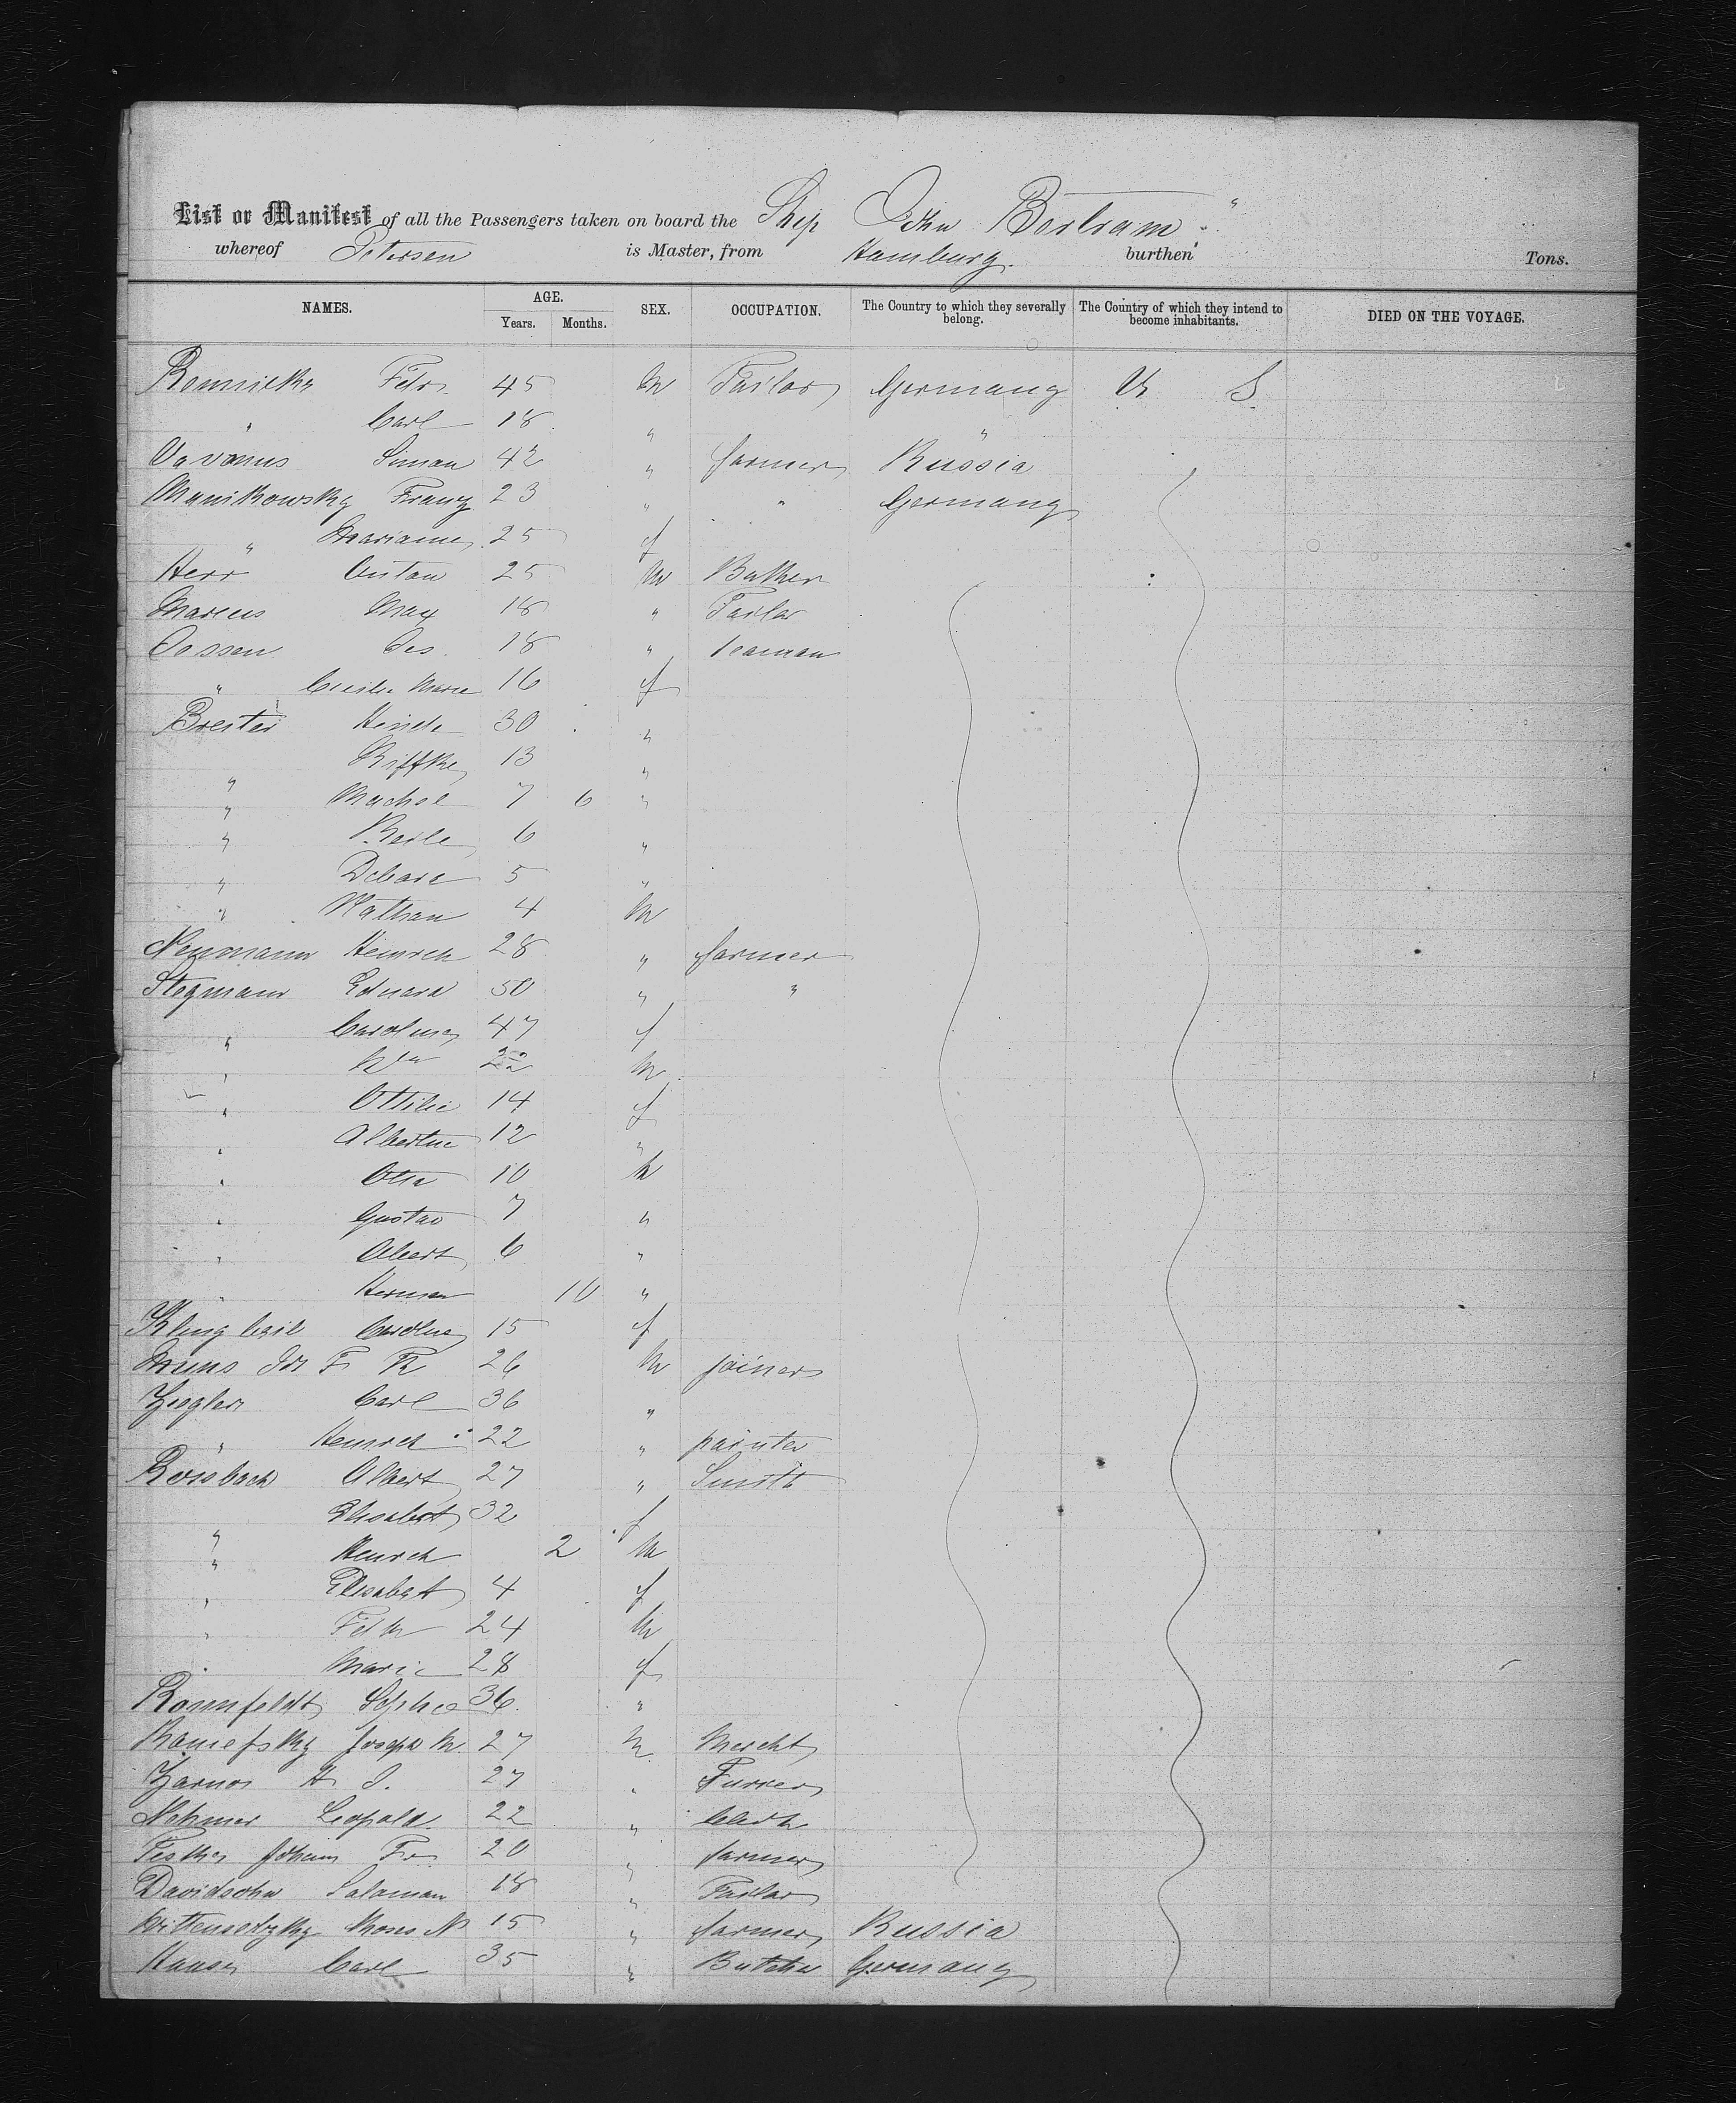 List or Manifest of all the Passengers taken on board the Ship John Bertram"
whereof Petersen is Master, from Hamburg. burthen Tons.
NAMES. AGE. Years. Months. SEX. OCCUPATION. The Country to which they severally belong. The Country of which they intend to become inhabitants. DIED ON THE VOYAGE.
45 M Tailor Germany U S
" Carl 18 " "
Simon 42 " farmer Russia
Manikowsky Franz 23 " " Germany
" Mariane 25 f
Herr 25 M
Marcus Max 18 " Tailor
Jessen Jes 18 " seaman
" Marie 16 f
Hinde 30 "
" Riffke 13 "
" Rachel 7 6 "
" 6 "
" 5 "
" Nathan 4 M
Neumann Heinrich 28 " farmer
Stegmann Eduard 50 " "
" Caroline 47 f
" 22 M
" Ottilie 14 f
" Albertine 12 "
" Otto 10 M
" Gustav 7 "
" Albert 6 "
" Herman 10 "
Klingbeil Caroline 15 f
F R 26 M joiner
Ziegler Carl 36 "
" Heinrich 22 " painter
Rossbach Albert 27 " Smith
" Elisabeth 32 f
" Heinrich 2 M
" Elisabeth 4 f
" 24 M
" Marie 28 f
Rosenfeldt Sophie 36 "
Joseph M. 27 M Mercht
H J. 27 " Furrer
Leopold 22 " Clerk
Johann Fr 20 " farmer
Davidsohn Salaman 18 " Tailor
Moses N 15 " farmer Russia
Haase Carl 35 " Butcher Germany